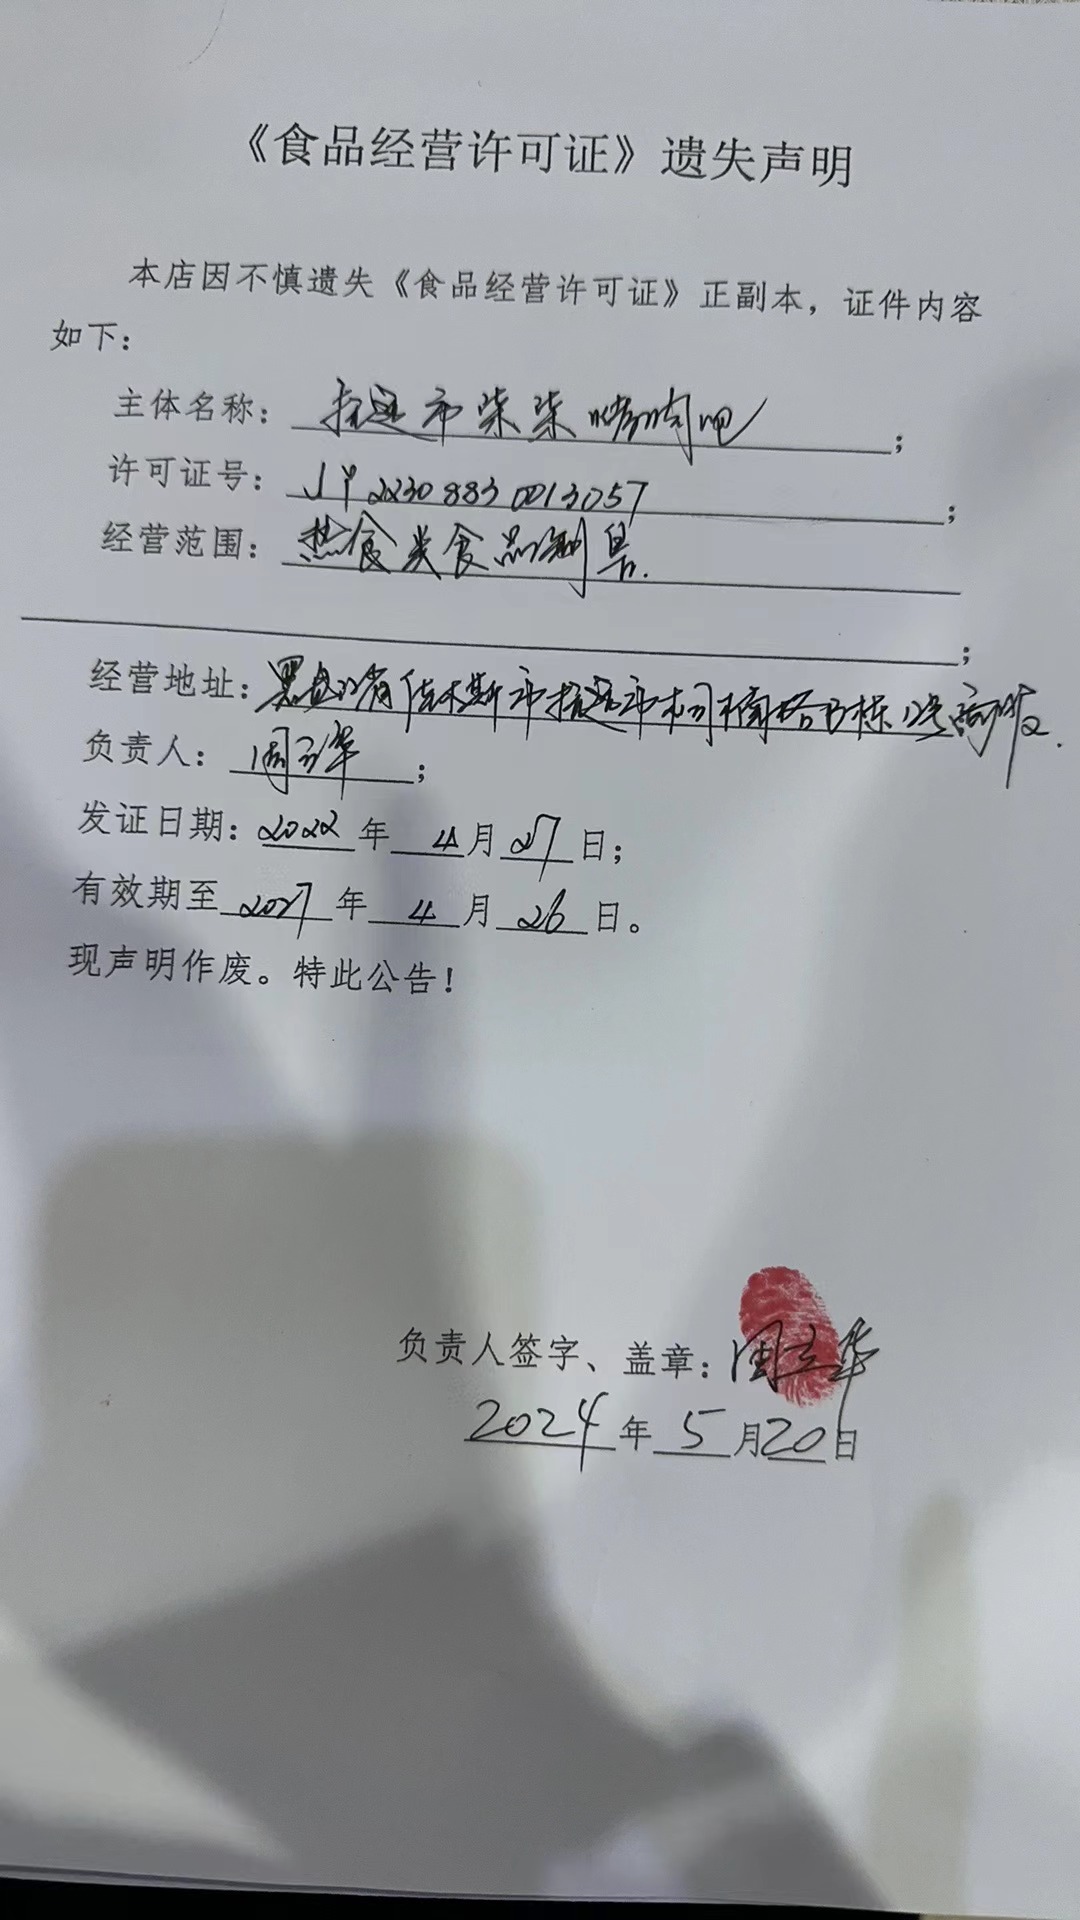 《食品经营许可证》遗失声明
本店因不慎遗失《食品经营许可证》正副本，证件内容
如下：
主体名称：抚远市柒柒烤肉吧；
许可证号：JY22308830013057；
经营范围：热食类食品制售.
；
经营地址：黑龙江省佳木斯市抚远市
负责人：周立华；
发证日期：2022年4月27日；
有效期至2027年4月26日。
现声明作废。特此公告！
负责人签字、盖章：周立华
2024年5月20日